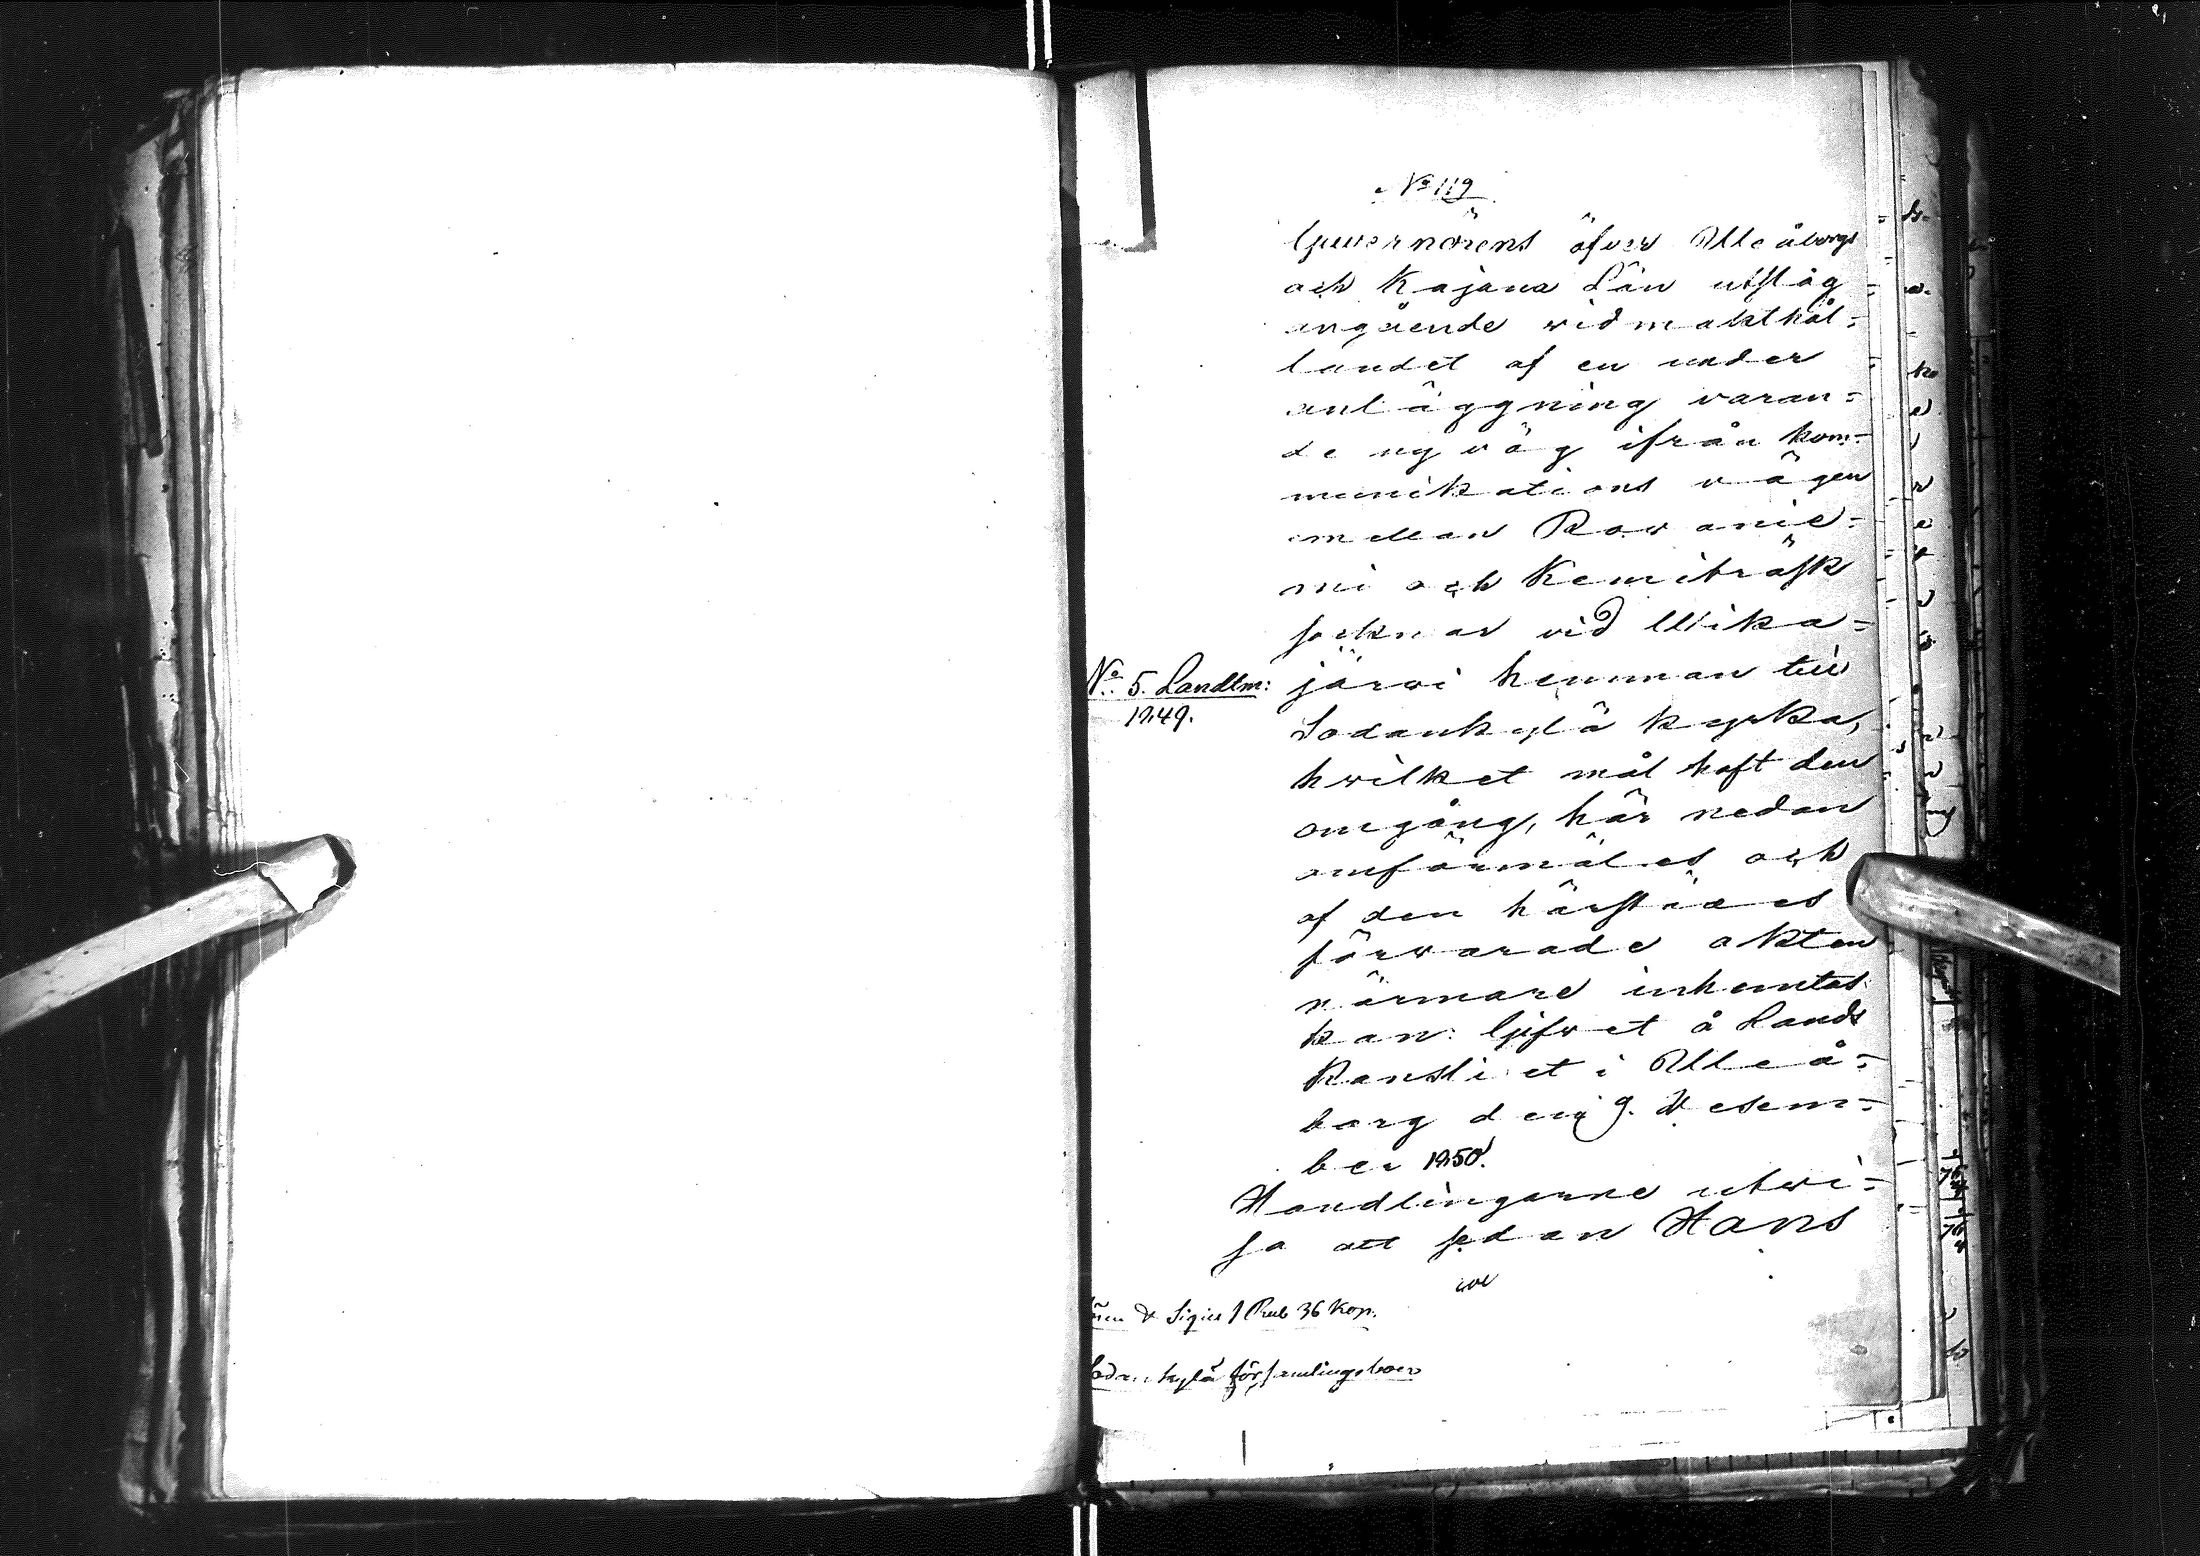 No 119
Guvernörens öfver Uleåborgs
och Kajana Län utslag
angående widmakthål=
landet af en under
anläggning varan=
de ny väg ifrån kom=
munikations vägen
emellan Rowanie=
mi och Kemiträsk
socknar vid Wika=
No 5. Landtm:
1849.
järwi hemman till
Sodankylä kyrka,
hwilket mål haft den
omgång, här nedan
omförmäles och
af den härstädes
förwarade akten
närmare inhemtas
kan: Gifvet å Lands
Kansliet i Uleå=
borg den 9. Desem=
ber 1850.
Handlingarne utwi=
sa att sedan Hans
Lösen & Sigill 1 Rub 36 Kop.
Sodankylä församlingsboer